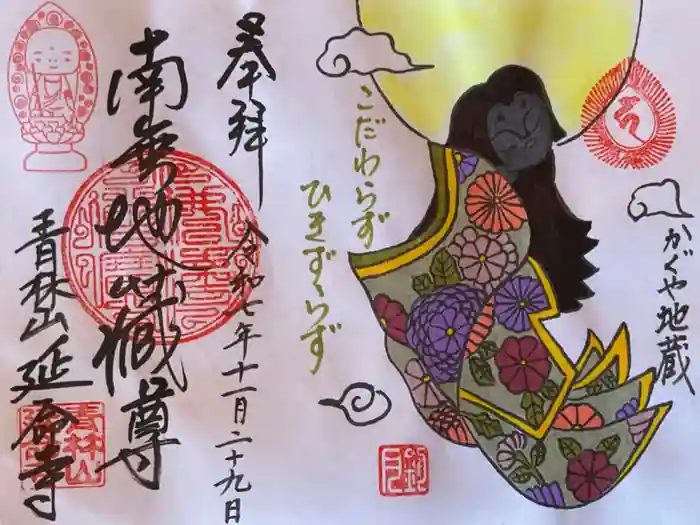 奉拝
令和七年十一月二十九日
南無地蔵尊
青林山延命寺
こだわらず
ひきずらず
かぐや地蔵
青林山